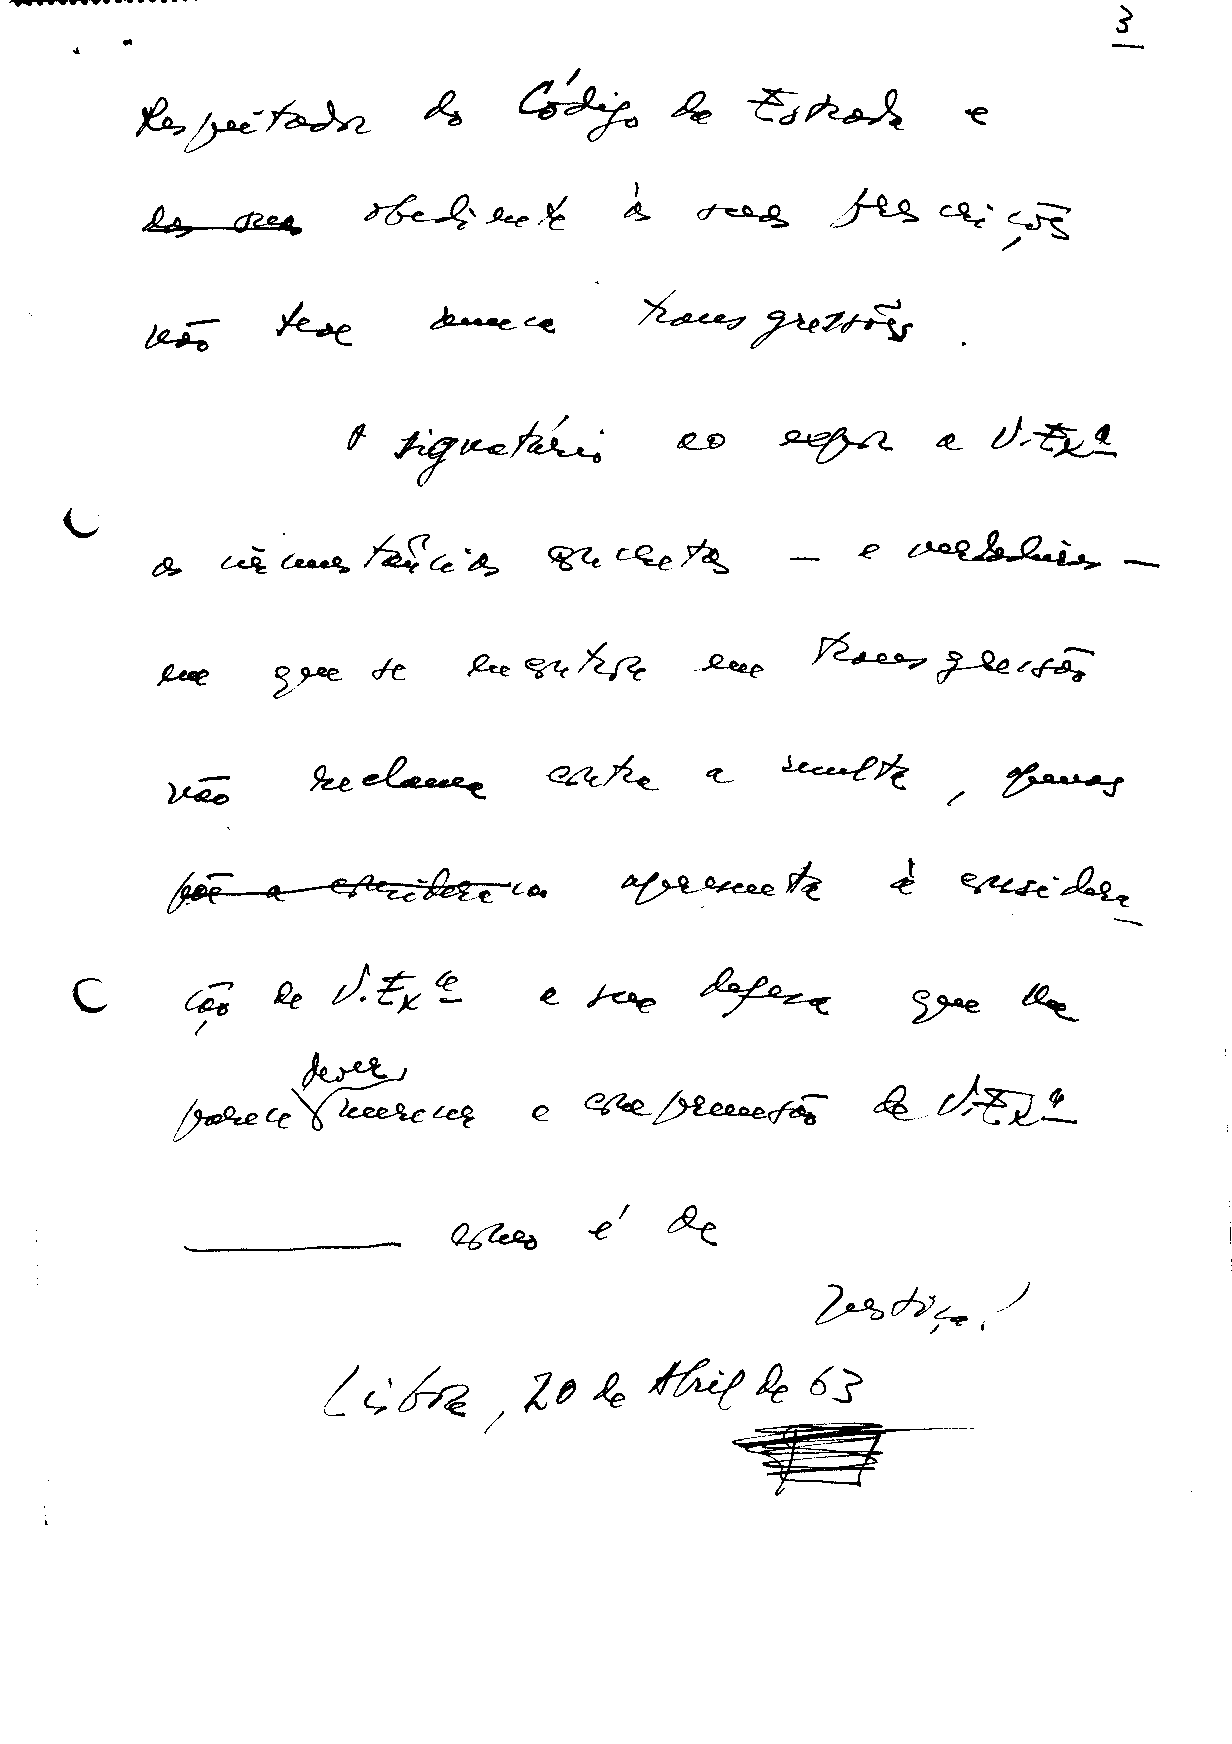 3
Respeitador do Código da Estrada e
das suas obediente às suas prescrições
não teve nunca transgressões.
O signatário ao expor a V. Exª
as circunstâncias concretas — e verdadeiras —
em que se encontra em transgressão
não reclama contra a multa, apenas
põe a consideração apresenta à considera-
ção de V. Exª a sua defesa que lhe
dever
parece merecer a compreensão de V. Exª
como é de
Justiça!
Lisboa, 20 de Abril de 63